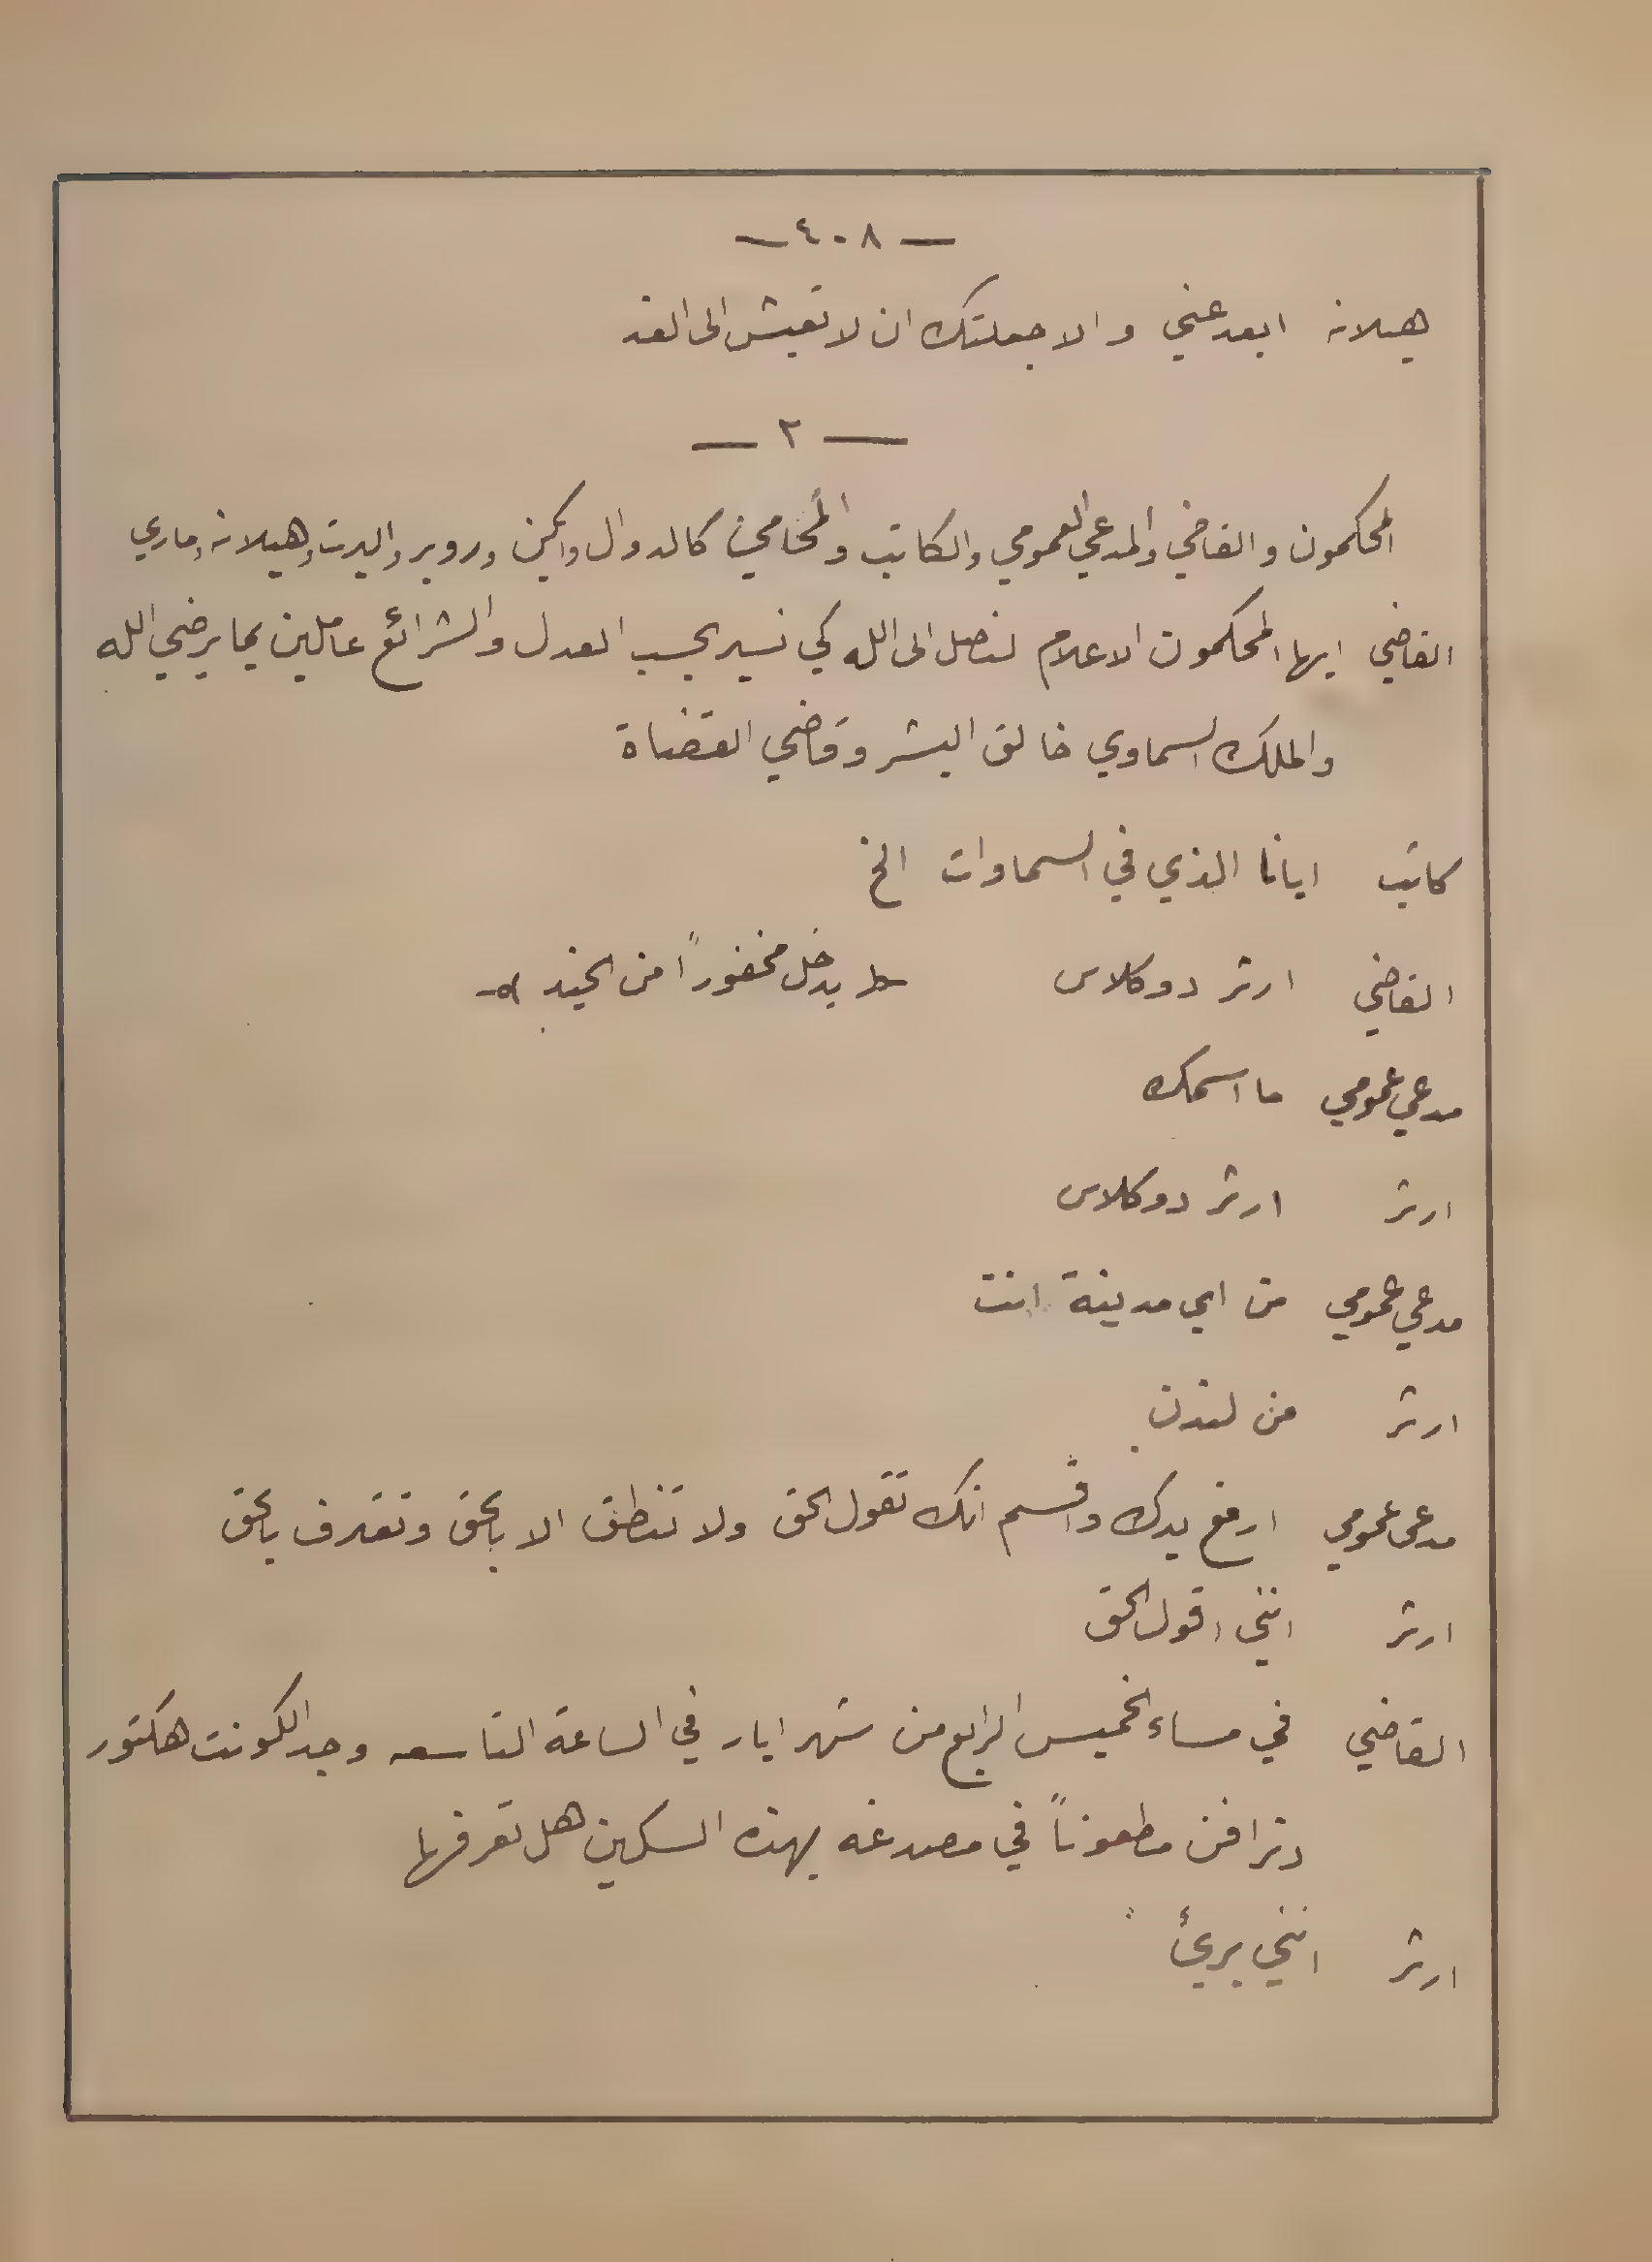 — ٤٠٨ —
هيلانه ابعد عني والا جعلتك ان لا تعيش الى الغد
— ٢ —
المحكمون والقاضي والمدعي العمومي والكاتب والمحامي كالدوال وايكن وروبر والبرت وهيلانه وماري
القاضي ايها المحكمون الاعلام لنصل الى الله كي نسير بحسب العدل والشرائع عاملين بما يرضي الله
والملك السماوي خالق البشر وقاضي القضاة
كاتب ابانا الذي في السماوات الخ
القاضي ارثر دوكلاس يدخل مخفوراً من الجند
مدعي عمومي ما اسمك
ارثر ارثر دوكلاس
مدعي عمومي من اي مدينة انت
ارثر من لندن
مدعي عمومي ارفع يدك واقسم انك تقول الحق ولا تنطق الا بالحق وتعترف بالحق
ارثر انني اقول الحق
القاضي في مساء الخميس الرابع من شهر ايار في الساعة التاسعه وجد الكونت هكتور
دترافن مطعوناً في مصدغه بهذه السكين هل تعرفها
ارثر انني بريئ